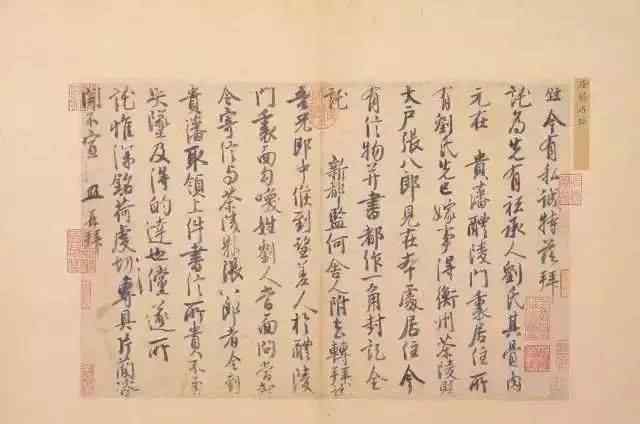 今有私誠特茲拜
託為先有祗承人劉氏其骨肉
元在 貴藩醴陵門裏居住所
有劉氏先已嫁事得衡州茶陵縣
大戶張八郎見在本處居住今
有信物并書都作一角封記全
託 新都監何舍人附去轉拜託
吾兄郎中候到望差人於醴陵
門裏面勾喚姓劉人當面問當卻
令寄信與茶陵縣張八郎者令到
貴藩取領上件書信所貴不至
失墜及得的達也儻遂所
託惟深銘荷虔切專具片簡咨
聞不宣 再拜